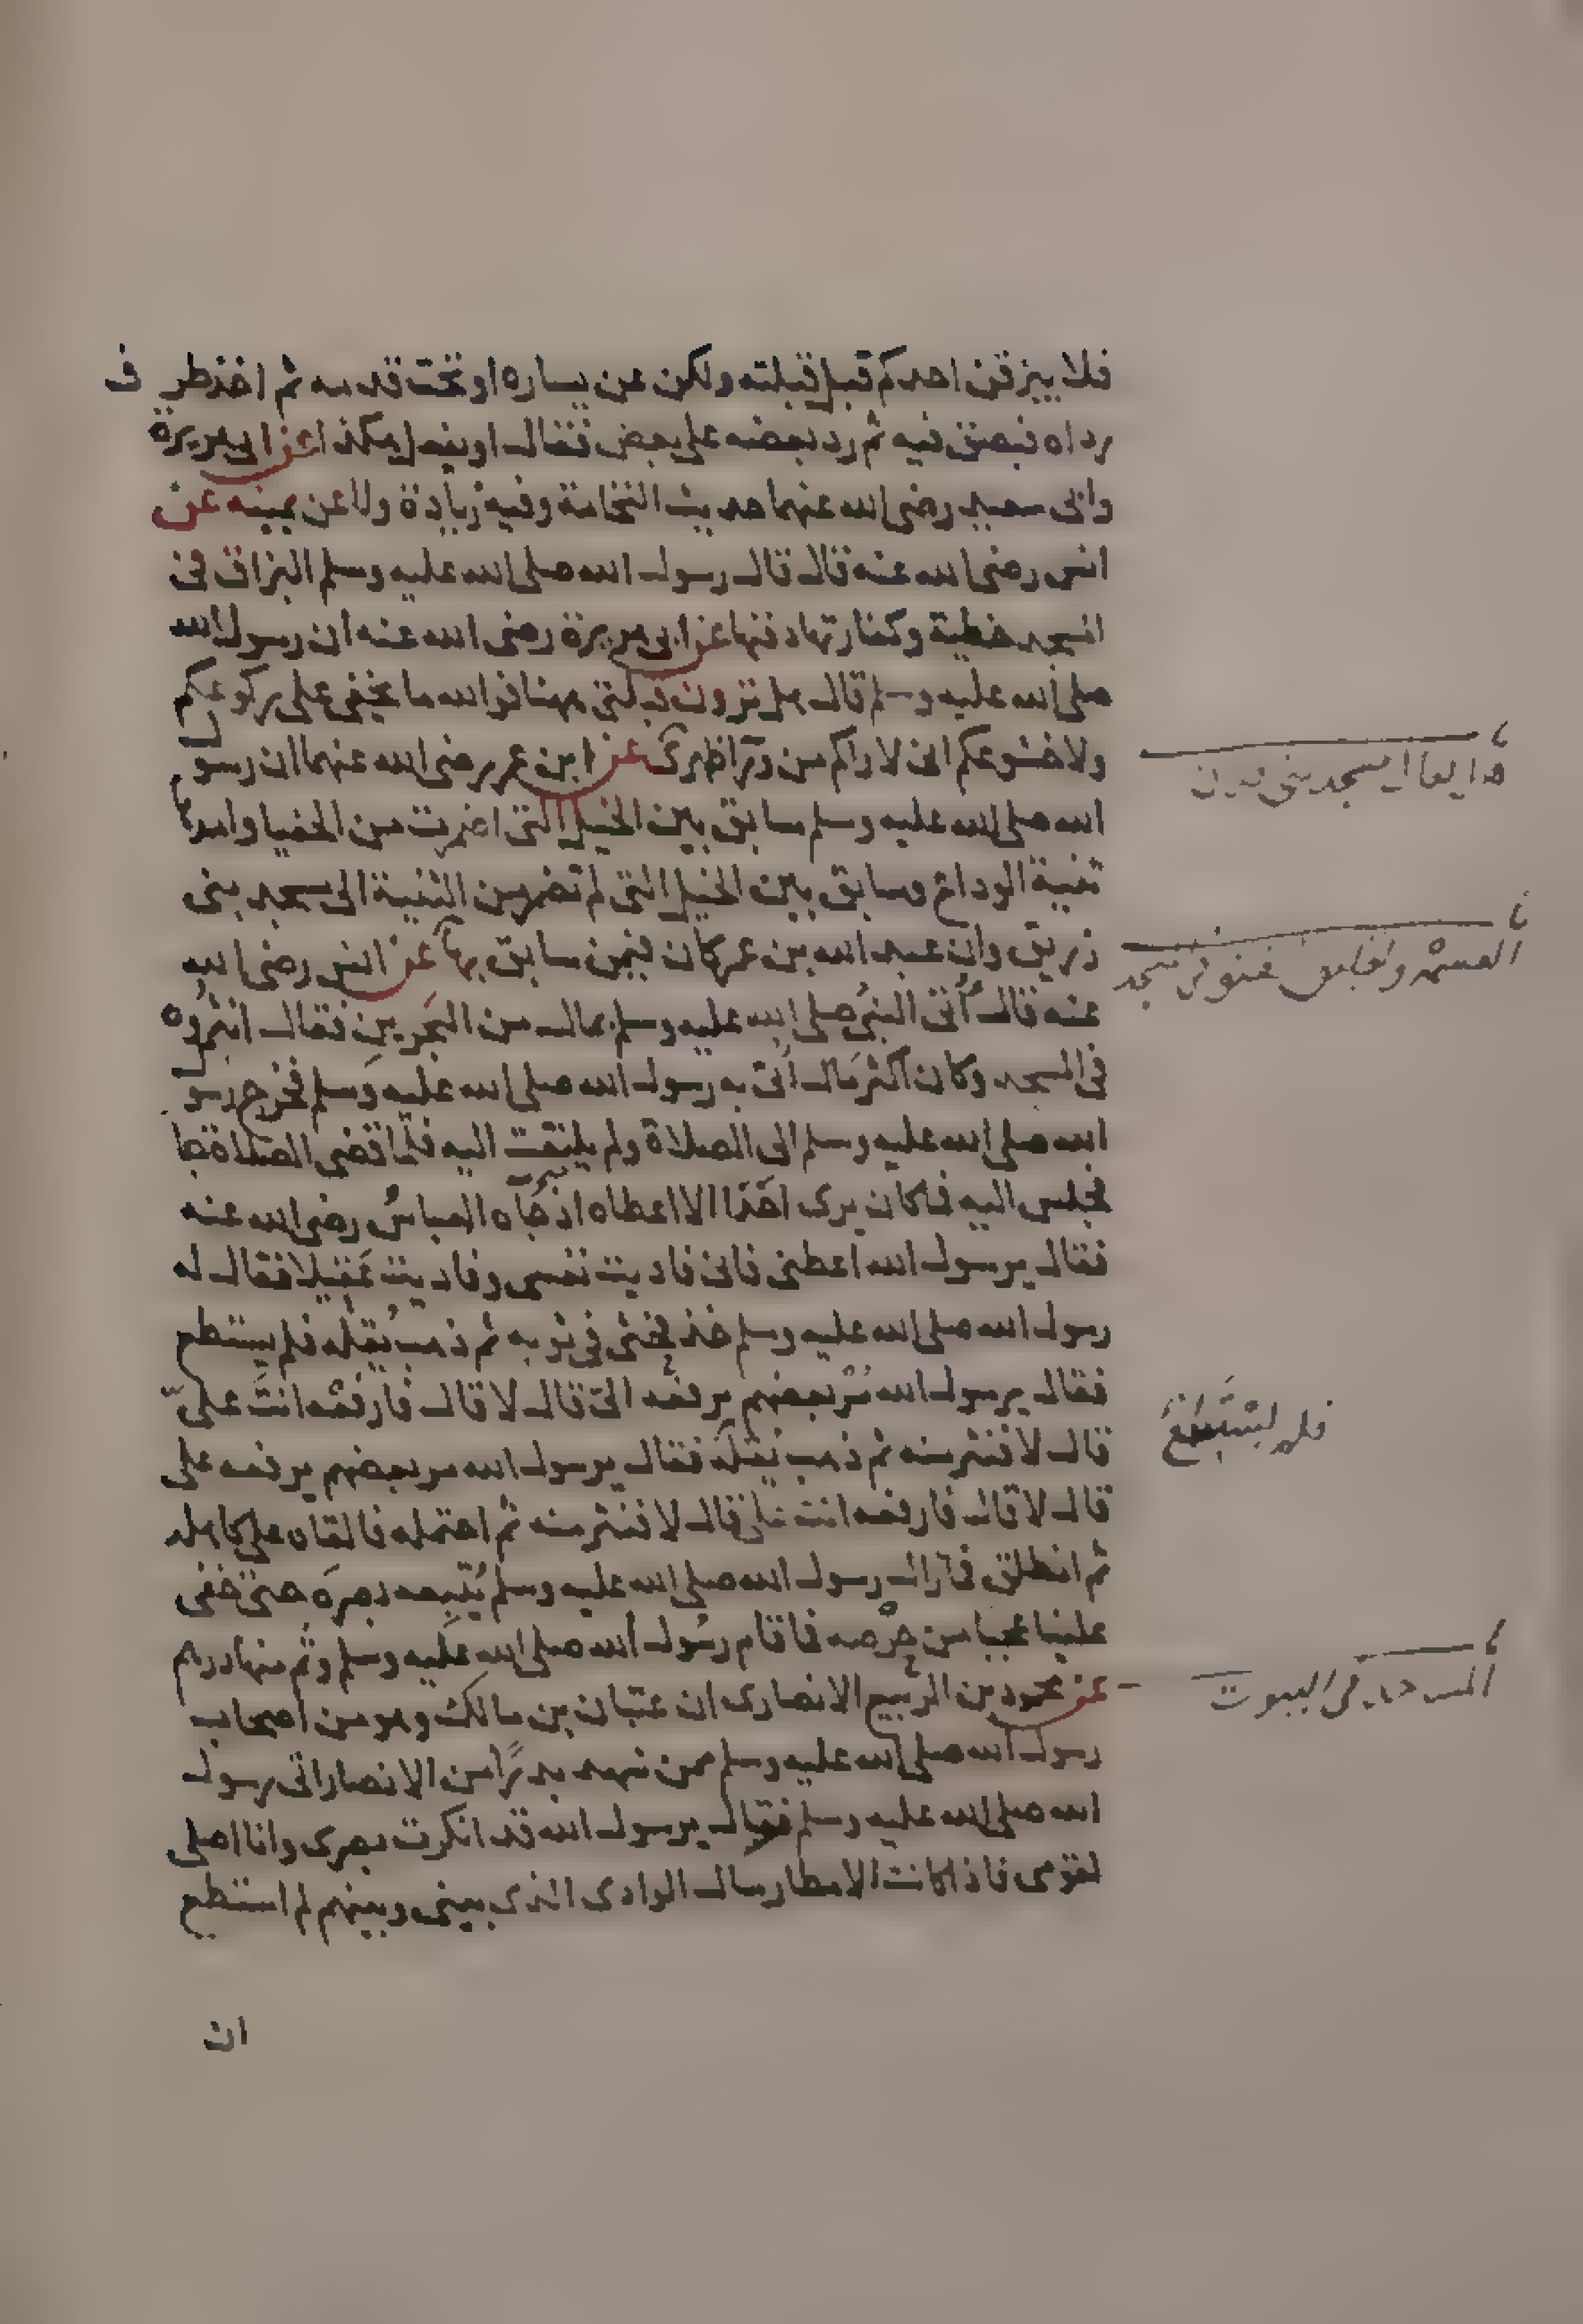 فلا يبزقن احدكم قبل قبلته ولكن عن يساره او تحت قدمه ثم اخذ طرف
رداه فبصق فيه ثم رد بعضه على بعض فقال او يفعل هكذا عن ابى هريرة
وابى سعيد رضى الله عنهما حديث النخامة وفيه زيادة ولا عن يمينه عن
انس رضى الله عنه قال قال رسول الله صلى الله عليه وسلم البزاق فى
المسجد خطية وكفارتها دفنها عن ابى هريرة رضى الله عنه ان رسول الله
صلى الله عليه وسلم قال هل ترون قبلتى ههنا فوالله ما يخفى على ركوعكم
ولا خشوعكم انى لاراكم من ورآ ظهرى عن ابن عمر رضى الله عنهما ان رسول
الله صلى الله عليه وسلم سابق بين الخيل التى اضمرت من الحفيا وامدها
ثنية الوداع وسابق بين الخيل التى لم تضمر من الثنية الى مسجد بنى
زريق وان عبد الله بن عمر كان فيمن سابق بها عن انس رضى الله
عنه قال أتى النبى صلى الله عليه وسلم بمال من البحرين فقال انثروه
فى المسجد وكان اكثر مال أتى به رسول الله صلى الله عليه وسلم فخرج رسول
الله صلى الله عليه وسلم الى الصلاة ولم يلتفت اليه فلما قضى الصلاة جا
فجلس اليه فما كان يرى احدا الا اعطاه اذ جآه العباس رضى الله عنه
فقال يرسول الله اعطنى فانى فاديت نفسى وفاديت عقيلا فقال له
رسول الله صلى الله عليه وسلم خذ فحثى فى ثوبه ثم ذهب يُقله فلم يستطع
فقال يرسول الله مُرْ بعضهم يرفعه الىّ قال لا قال فارفعْه انتَ علىّ
قال لا فنثر منه ثم ذهب يُقلّه فقال يرسول الله مر بعضهم يرفعه على
قال لا قال فارفعه انت على قال لا فنثر منه ثم احتمله فالقاه على كاهله
ثم انطلق فما زال رسول الله صلى الله عليه وسلم يُتْبعه بصرَه حتى خفى
علينا عجبا من حِرْصه فما قام رسُول الله صلى الله عليه وسلم وثم منها درهم
عن محمود بن الربيع الانصارى ان عتبان بن مالك وهو من اصحاب
رسول الله صلى الله عليه وسلم ممن شهد بدرًا من الانصار اتى رسول
الله صلى الله عليه وسلم فقال يرسول الله قد انكرت بصرى وانا اصلى
لقومى فاذا كانت الامطار سال الوادى الذى بينى وبينهم لم استطع
ان
هل يقال مسجد بنى فلان
القسمة وتعليق القنو فى المسجد
فلم يَسْتَطِعْ
المساجد فى البيوت